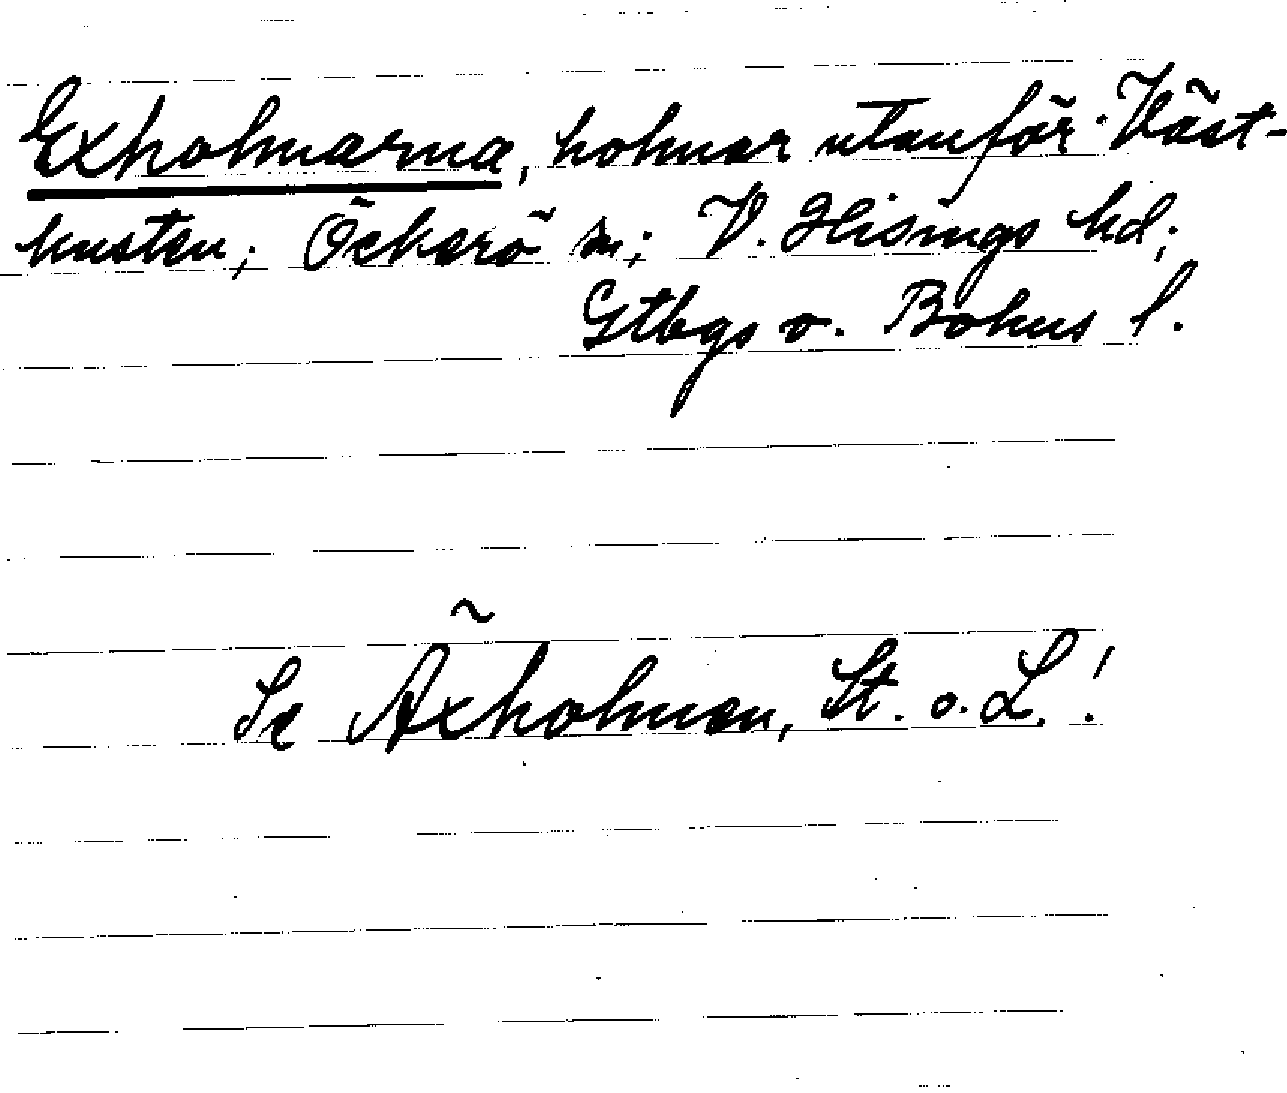 Exholmarna, holmar utanför Väst-
kusten; Öckerö sn; V. Hisings hd;
Gtbgs o. Bohus l.
Se Äxholmen, St. o. L.!